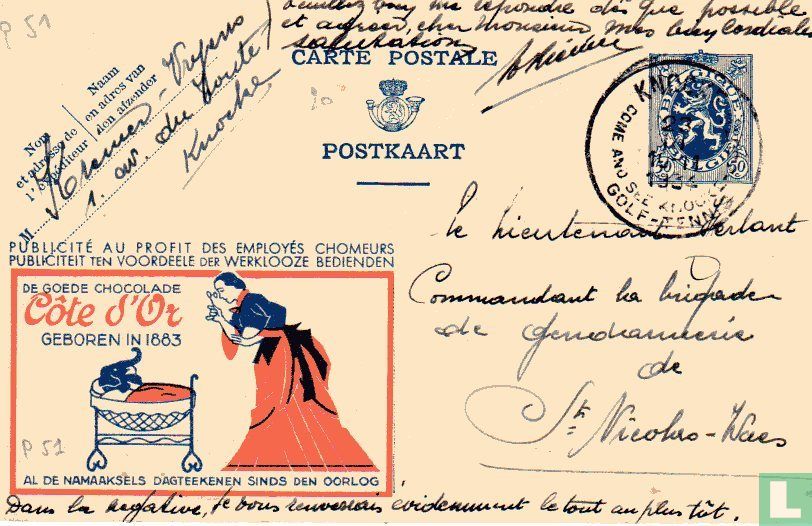 P 51
veuillez bien me répondre dès que possible
et agréer, cher Monsieur, mes bien cordiales
salutations
CARTE POSTALE
POSTKAART
Nom
et adresse de
l'expéditeur
Naam
en adres van
den afzender
M. Kremer-
1. av. du
Knocke
BELGIQUE
BELGIË
50
KNOCKE
1932
COME AND SEE KNOCKE
GOLF-TENNIS
PUBLICITÉ AU PROFIT DES EMPLOYÉS CHOMEURS
PUBLICITEIT TEN VOORDEELE DER WERKLOOZE BEDIENDEN
DE GOEDE CHOCOLADE
Côte d'Or
GEBOREN IN 1883
P 51
AL DE NAMAAKSELS DAGTEEKENEN SINDS DEN OORLOG
le Lieutenant Verlant
Commandant la brigade
de gendarmerie
de
St Nicolas-Waes
Dans la négative, je vous renverrais évidemment le tout au plus tôt.
L